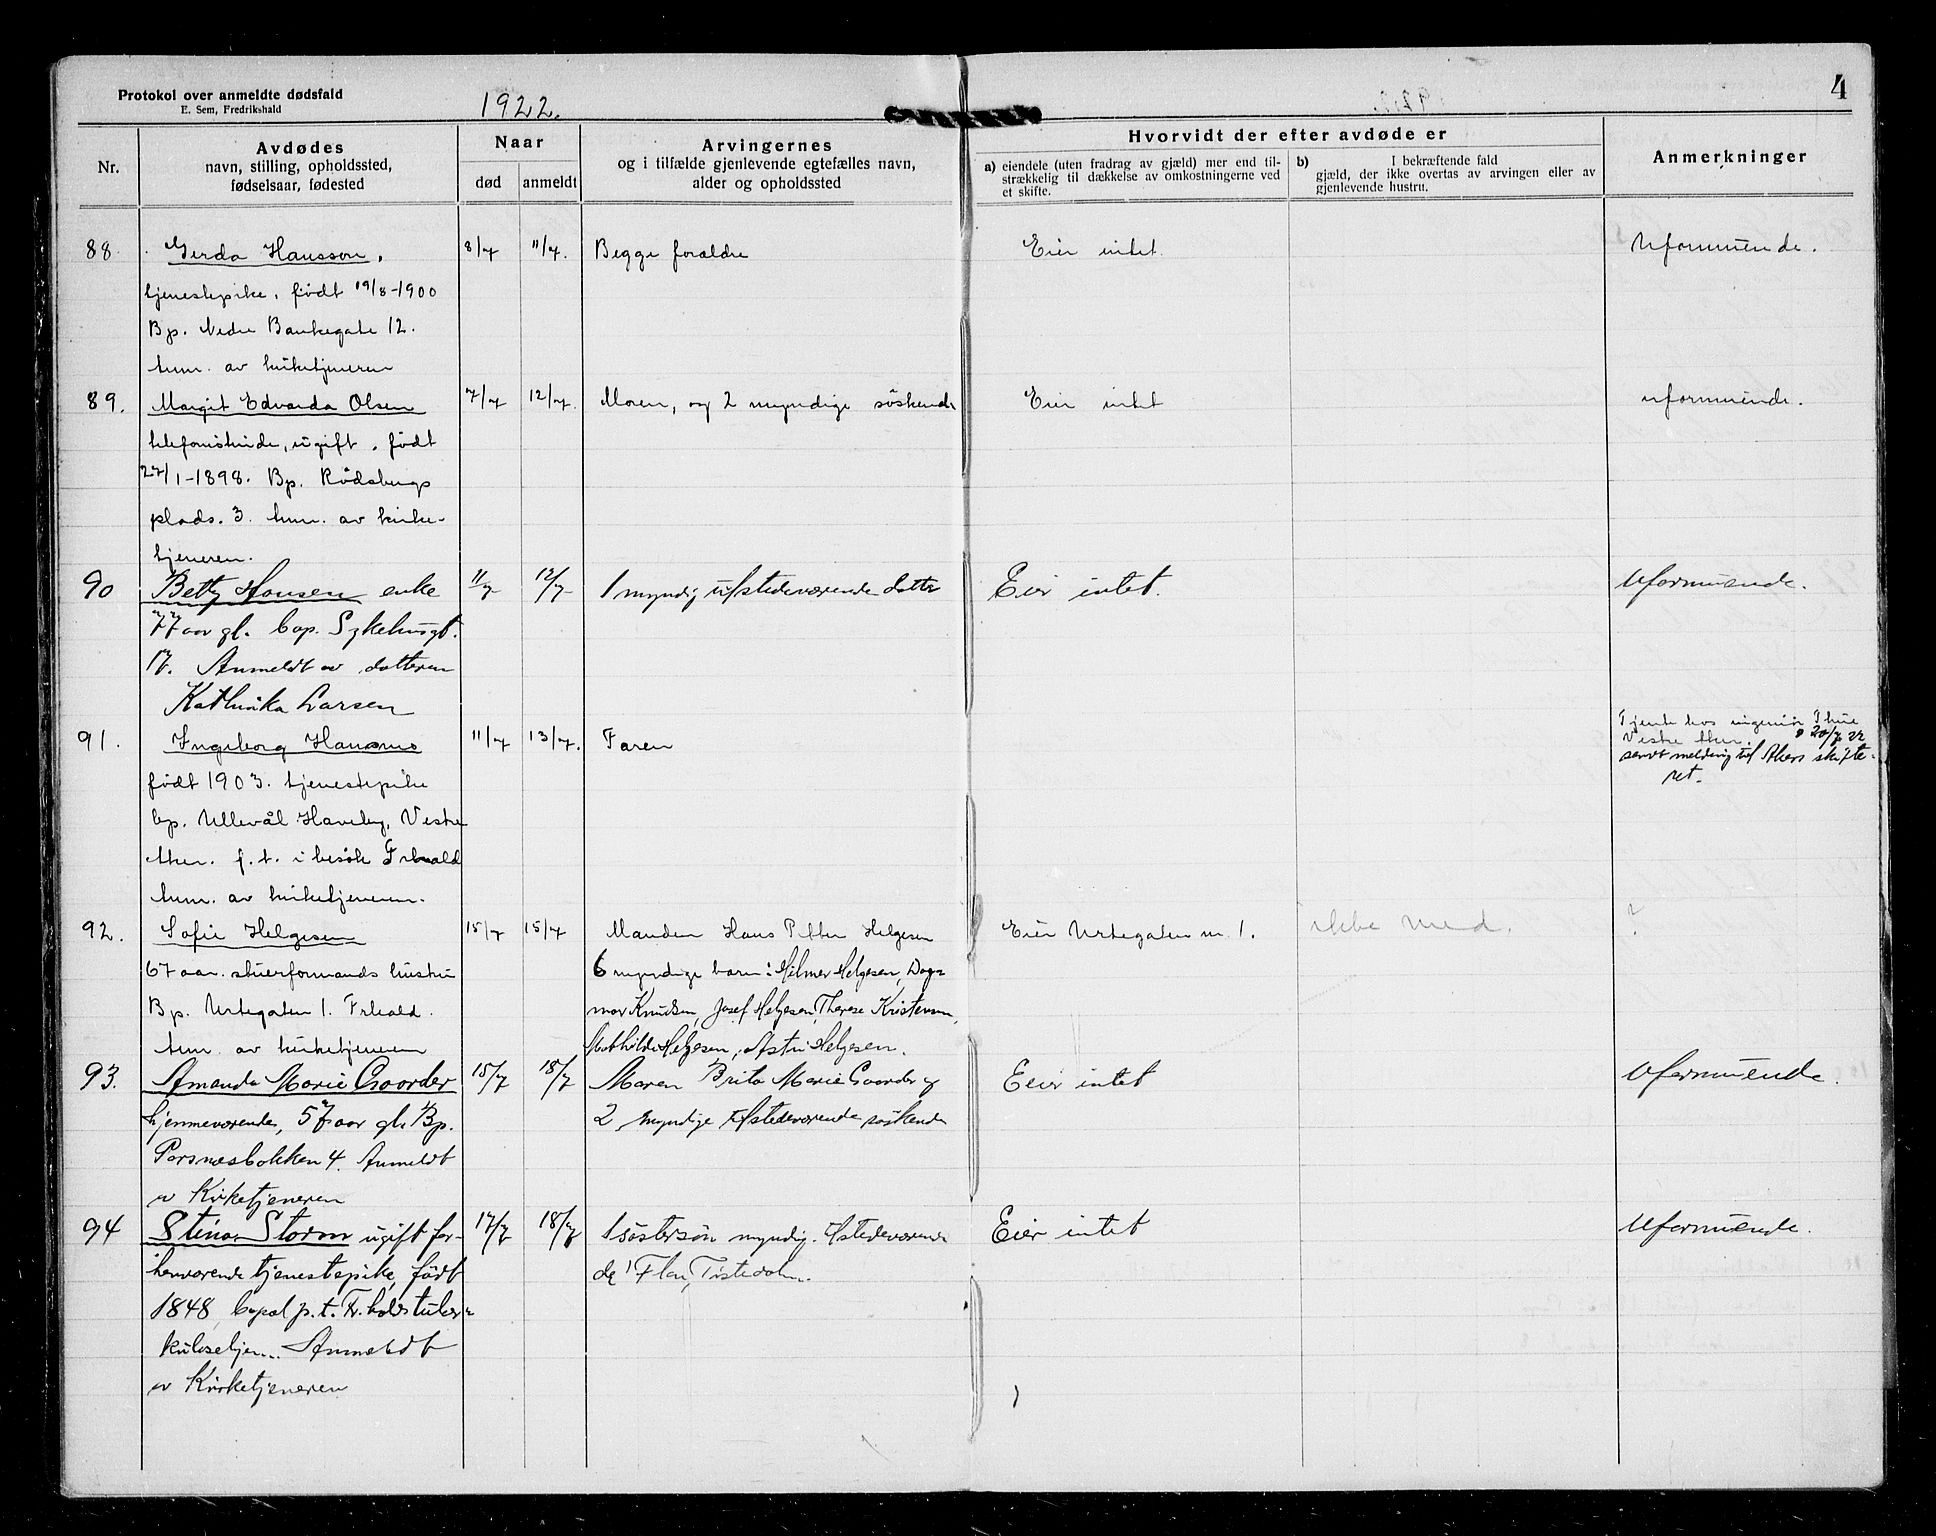 Protokol over anmeldte dødsfald
E. Sem, Fredrikshald
1922.
4
Nr.
Avdødes
navn, stilling, opholdssted,
fødselsaar, fødested
Naar
død
anmeldt
Arvingernes
og i tilfælde gjenlevende egtefælles navn,
alder og opholdssted
Hvorvidt der efter avdøde er
a) eiendele (uten fradrag av gjæld) mer end til-
strækkelig til dækkelse av omkostningerne ved
et skifte.
b) I bekræftende fald
gjæld, der ikke overtas av arvingen eller av
gjenlevende hustru.
Anmerkninger
88. Gerda Hansson, 8/7 11/7. Begge forældre Eier intet. Uformuende.
tjenestepike, født 19/8-1900
Bp. Nedre Bankegate 12.
Anm. av kirketjeneren
89. Margit Edvarda Olsen 7/7 12/7. Moren, og 2 myndige søskende Eier intet uformuende.
telefonistinde, ugift, født
27/1-1898. Bp. Rødsbergs
plads. 3. Anm. av kirke-
tjeneren.
90 Betty Hansen enke 11/7 12/7 1 myndig tilstedeværende datter Eier intet. Uformuende.
77 aar gl. bop. Sykehusgt.
17. Anmeldt av datteren
Larsen
91. Ingeborg 11/7 13/7. Faren
født 1903. tjenestepike
bp. Ullevål Haveby, Vestre
Aker. f. t. i besøk Frhald
Anm. av kirketjeneren.
Tjente hos ingeniør Thue
Vestre Aker. 20/7 22
sendt melding til Akers skifte-
ret.
92. Sofie Helgesen 15/7 15/7 Manden Hans Petter Helgesen Eier Urtegaten nr. 1. ikke med. ?
67 aar. stuerformands hustru 6 myndige barn: Hilmer Helgesen, Dag-
Bp. Urtegaten 1. Frhald. mar Knudsen, Josef Helgesen, Therese Kristensen,
Anm. av kirketjeneren Mathilde Helgesen, Astri Helgesen.
93. Amanda Marie Gaarder 15/7 18/7 Moren Brita Marie Gaarder og Eier intet Uformuende.
hjemmeværende, 57 aar gl. Bp. 2 myndige tilstedeværende søskende
Porsnæsbakken 4. Anmeldt
av Kirketjeneren
94 Stina Storm ugift for- 17/7 18/7 1 søstersøn myndig. tilstedeværen- Eier intet Uformuende.
henværende tjenestepike, født de i Tistedalen.
1848, bopæl p. t. Fr.halds tuber-
kulosehjem. Anmeldt
av Kirketjeneren